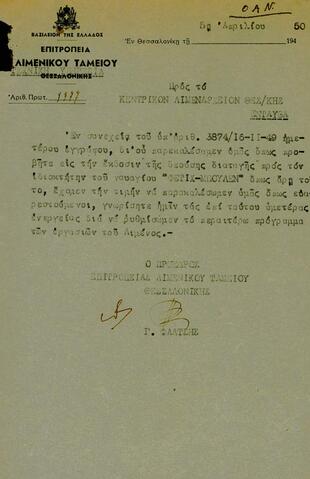 Ο.Α.Ν.
5η Απριλίου 50
ΒΑΣΙΛΕΙΟΝ ΤΗΣ ΕΛΛΑΔΟΣ
Ἐν Θεσσαλονίκῃ τῇ 194
ΕΠΙΤΡΟΠΕΙΑ
ΛΙΜΕΝΙΚΟΥ ΤΑΜΕΙΟΥ
ΘΕΣΣΑΛΟΝΙΚΗΣ
Πρός τό
Ἀριθ. Πρωτ. 1977
ΚΕΝΤΡΙΚΟΝ ΛΙΜΕΝΑΡΧΕΙΟΝ ΘΕΣ/ΚΗΣ
ΕΝΤΑΥΘΑ
Ἐν συνεχείᾳ τοῦ ὑπ'ἀριθ. 3874/16-11-49 ἡμε-
τέρου ἐγγράφου, δι'οὗ παρεκαλέσαμεν ὑμᾶς ὅπως προ-
βῆτε εἰς τήν ἔκδοσιν τῆς δεούσης διαταγῆς πρός τόν
ἰδιοκτήτην τοῦ ναυαγίου "ΦΕΤΙΧ-ΜΠΟΥΛΕΝ" ὅπως ἄρῃ τοῦ-
το, ἔχομεν τήν τιμήν νά παρακαλέσωμεν ὑμᾶς ὅπως εὐα-
ρεστούμενοι, γνωρίσητε ἡμῖν τάς ἐπί τούτου ὑμετέρας
ἐνεργείας διά νά ρυθμίσωμεν τό περαιτέρω πρόγραμμα
τῶν ἐργασιῶν τοῦ Λιμένος.-
Ο ΠΡΟΕΔΡΟΣ
ΕΠΙΤΡΟΠΕΙΑΣ ΛΙΜΕΝΙΚΟΥ ΤΑΜΕΙΟΥ
ΘΕΣΣΑΛΟΝΙΚΗΣ
Γ.